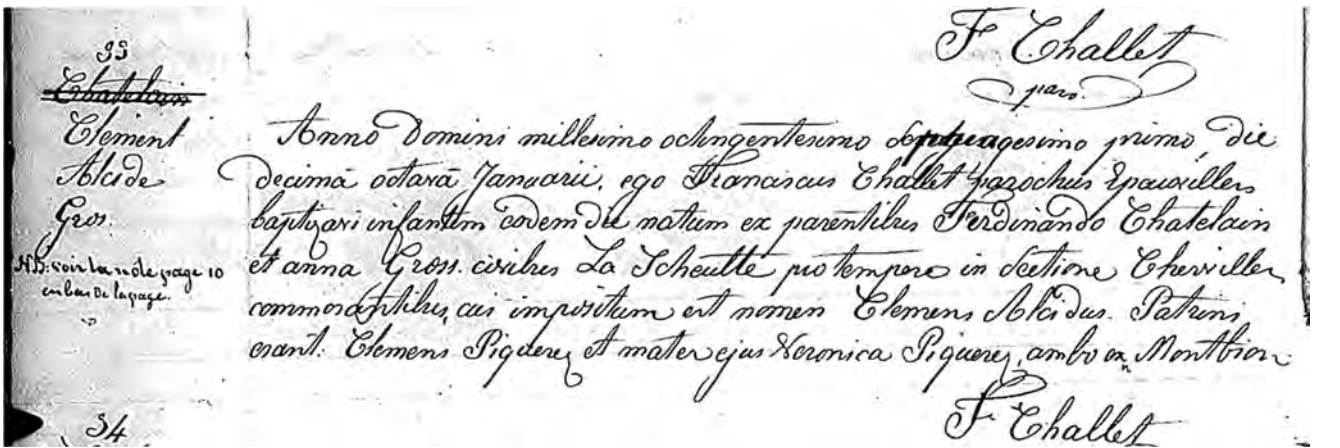 F Challet
paro.
33
Chatelain
Clement
Alcide
Gros.
NB: voir la note page 10
en bas de la page.
Anno Domini millesimo octingentesimo septuagesimo primo, die
decima octava Januarii, ego Franciscus Challet parochus Epauvillers
baptizavi infantem eodem die natum ex parentibus Ferdinando Chatelain
et anna Gross. civibus La Scheulte pro tempore in sectione Cherviller
commorantibus, cui impositum est nomen Clemens Alcidus. Patrini
erant. Clemens Piquerez et mater ejus Veronica Piquerez, ambo ex Montbion
F Challet
34